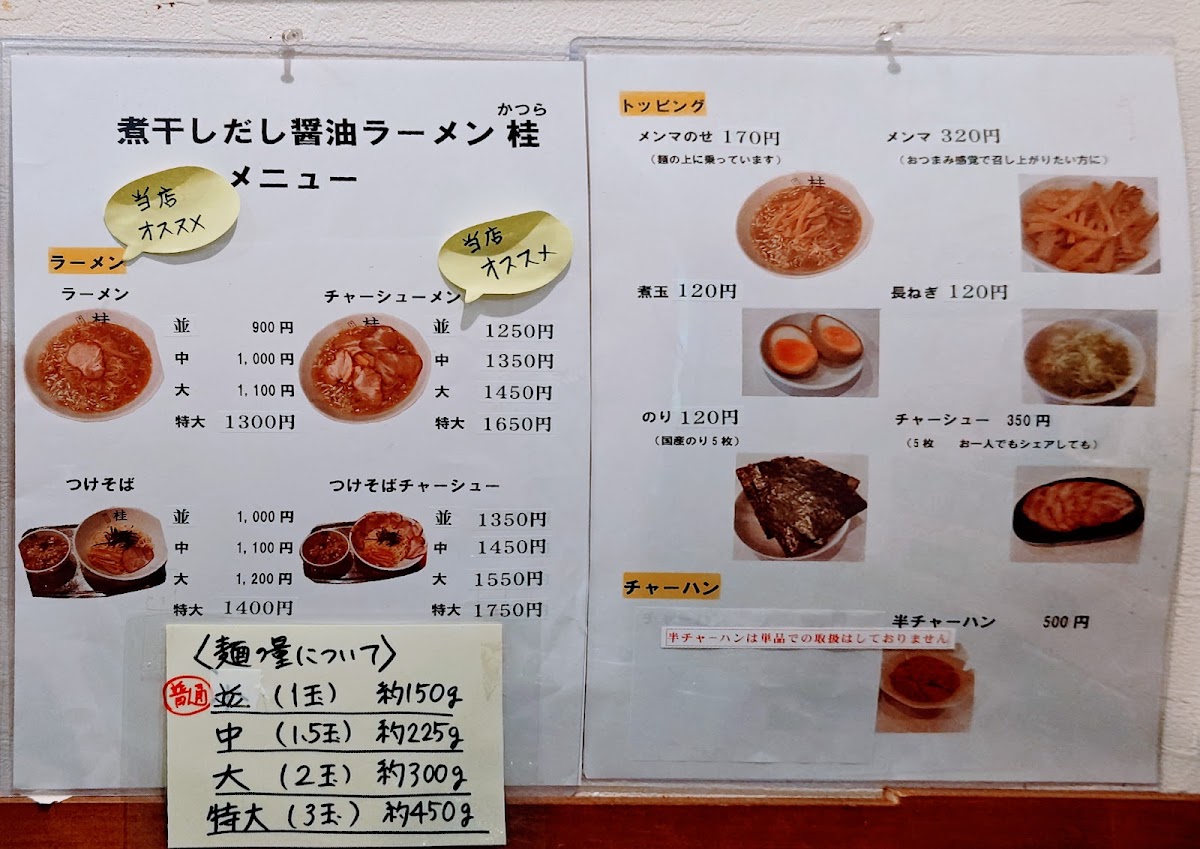 かつら
煮干しだし醤油ラーメン 桂
メニュー
当店
オススメ
当店
オススメ
ラーメン
ラーメン
桂
並 900円
中 1,000円
大 1,100円
特大 1300円
チャーシューメン
桂
並 1250円
中 1350円
大 1450円
特大 1650円
つけそば
桂
並 1,000円
中 1,100円
大 1,200円
特大 1400円
つけそばチャーシュー
並 1350円
中 1450円
大 1550円
特大 1750円
〈麺の量について〉
普通 並 (1玉) 約150g
中 (1.5玉) 約225g
大 (2玉) 約300g
特大 (3玉) 約450g
トッピング
メンマのせ 170円
(麺の上に乗っています)
桂
メンマ 320円
(おつまみ感覚で召し上がりたい方に)
煮玉 120円
長ねぎ 120円
のり 120円
(国産のり5枚)
チャーシュー 350円
(5枚 お一人でもシェアしても)
チャーハン
半チャーハン 500円
半チャーハンは単品での取扱はしておりません